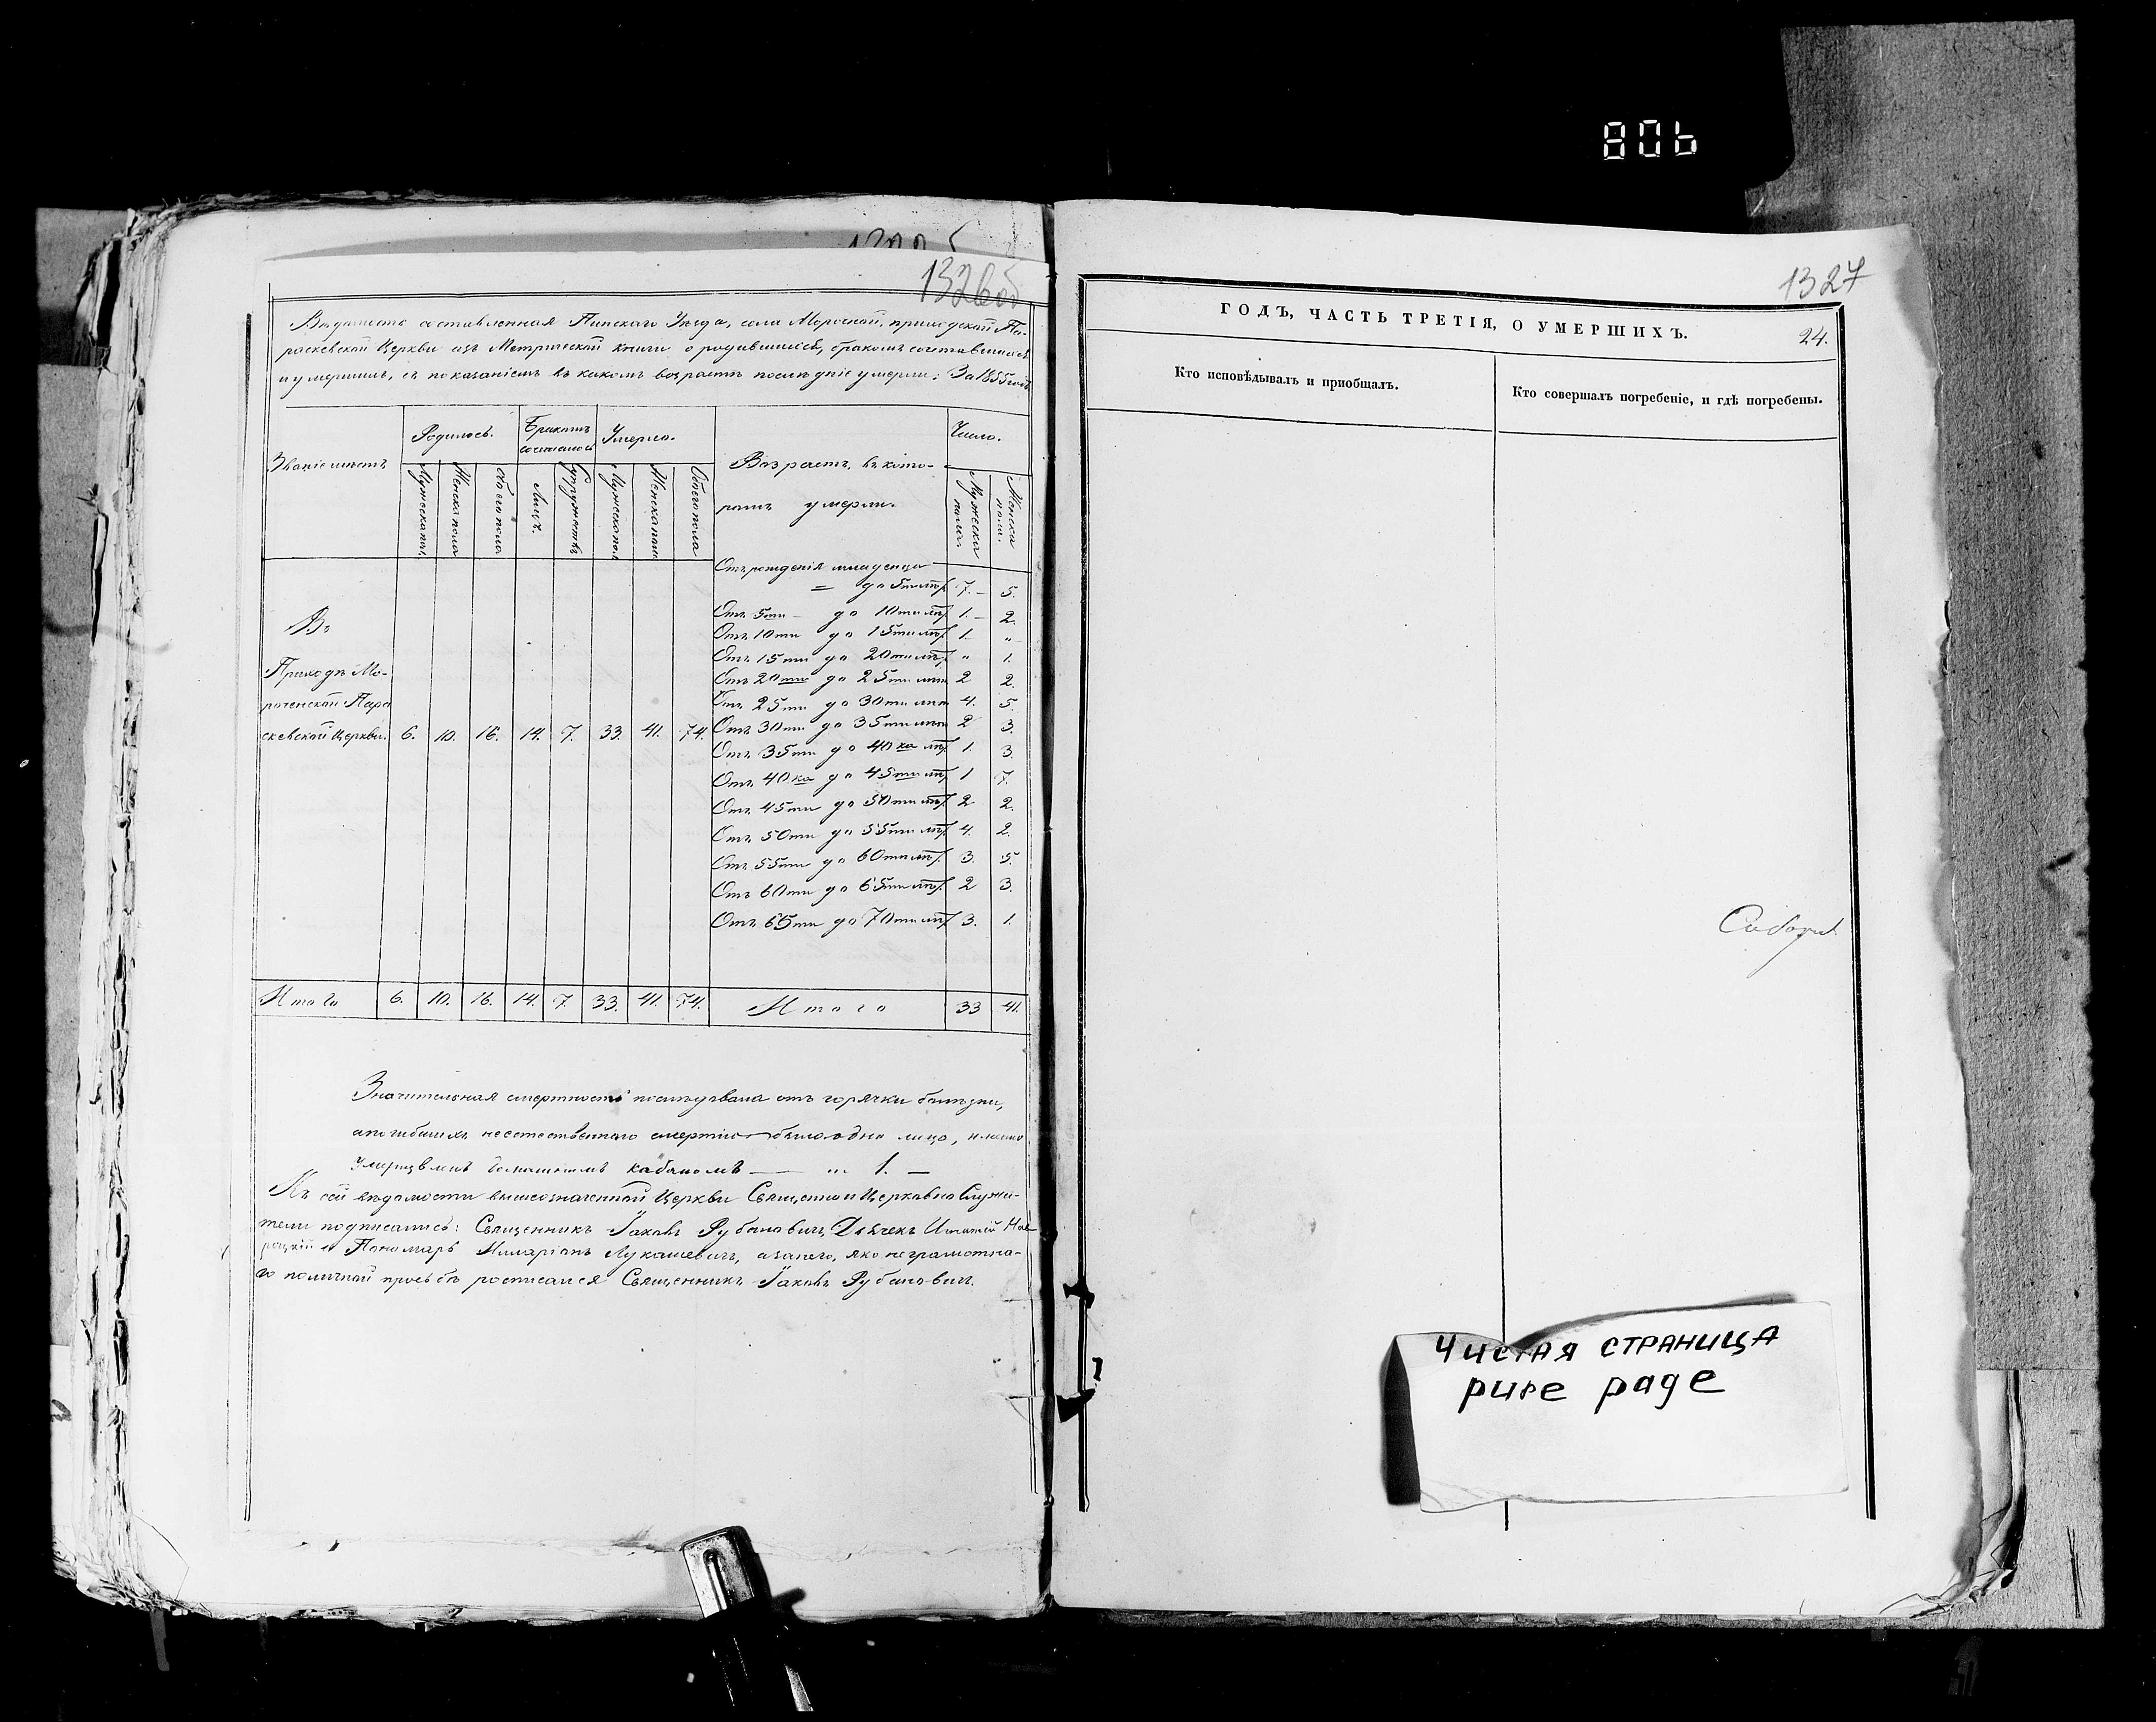 806
1326об
Ведомость составленная Пинского Уезда, села Морочной, приходской Па-
раскевской Церкви изъ Метрической книги о родившихся, бракомъ сочетавшихся
и умершихъ, съ показаніемъ въ какомъ возрасте последніе умерли: За 1855 годъ
Званіе местъ
Родилось.
Бракомъ сочеталось
Умерло.
Возрастъ, въ кото-
ромъ умерли.
Число.
Мужеска пол. Женска пола обоего пола Лицъ. Супружествъ Мужеска пол Женска пола Обоего пола
Мужеска пола. Женска пол.
Отъ рожденія младенца
= до 5ти лѣтъ 7. – 5.
Отъ 5ти – до 10ти лѣтъ 1. – 2.
Отъ 10ти до 15ти лѣтъ 1. „
Отъ 15ти до 20ти лѣтъ „ 1.
Отъ 20ти до 25ти лѣтъ 2 2.
Отъ 25ти до 30ти лѣтъ 4. 5.
Отъ 30ти до 35ти лѣтъ 2 3.
Отъ 35ти до 40ка лѣтъ 1. 3.
Отъ 40ка до 45ти лѣтъ 1 7.
Отъ 45ти до 50ти лѣтъ 2 2.
Отъ 50ти до 55ти лѣтъ 4. 2.
Отъ 55ти до 60ти лѣтъ 3. 5.
Отъ 60ти до 65ти лѣтъ 2 3.
Отъ 65ти до 70ти лѣтъ 3. 1.
Въ
Приходѣ Мо-
роченской Пара
скевской Церкви. 6. 10. 16. 14. 7. 33. 41. 74.
Итого 6. 10. 16. 14. 7. 33. 41. 74. Итого 33 41.
Значительная смертность последовала отъ горячки болезни,
а погибшихъ неестественного смертію было одно лицо, именно
умерщвленъ домашнимъ кабаномъ — „ 1. —
Къ сей ведомости вышеозначенной Церкви Священно и Церковно Служи-
тели подписались: Священникъ Іаковъ Рубановичъ, Дьячекъ Игнатій
и Пономарь Иларіонъ Лукашевичъ, а за него, яко неграмотна-
го по личной просьбе росписался Священникъ Іаковъ Рубановичъ.
1327
ГОДЪ, ЧАСТЬ ТРЕТІЯ, О УМЕРШИХЪ.
24.
Кто исповѣдывалъ и пріобщалъ.
Кто совершалъ погребеніе, и гдѣ погребены.
Чистая страница
pure page